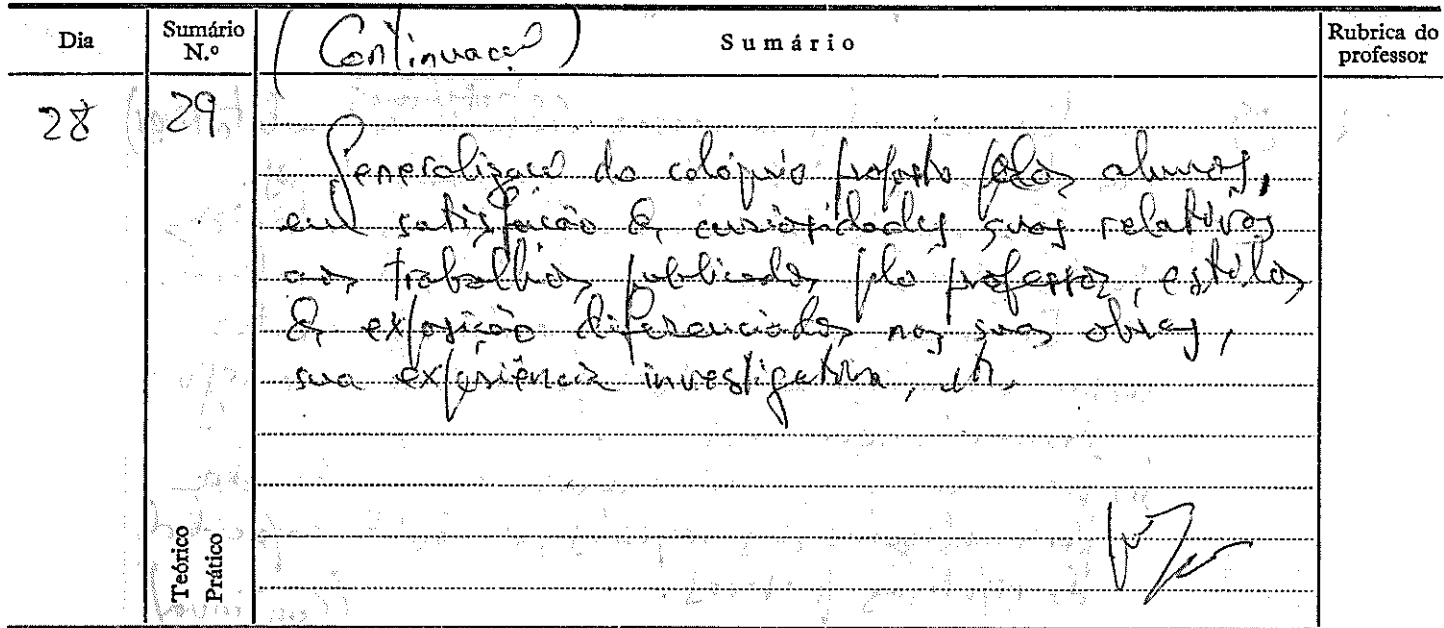 Dia
Sumário N.º
(Continuação)
Sumário
Rubrica do professor
28
29
Generalização do colóquio proposto pelos alunos,
em satisfação de curiosidades suas relativas
aos trabalhos publicados pelo professor, estilos
de exposição diferenciados nas suas obras,
sua experiência investigativa, etc.
Teórico
Prático